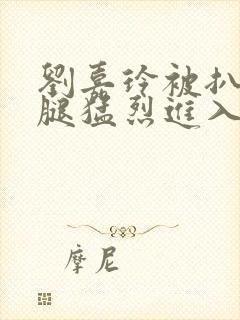 劉嘉玲被扒
腿猛烈進入
摩尼